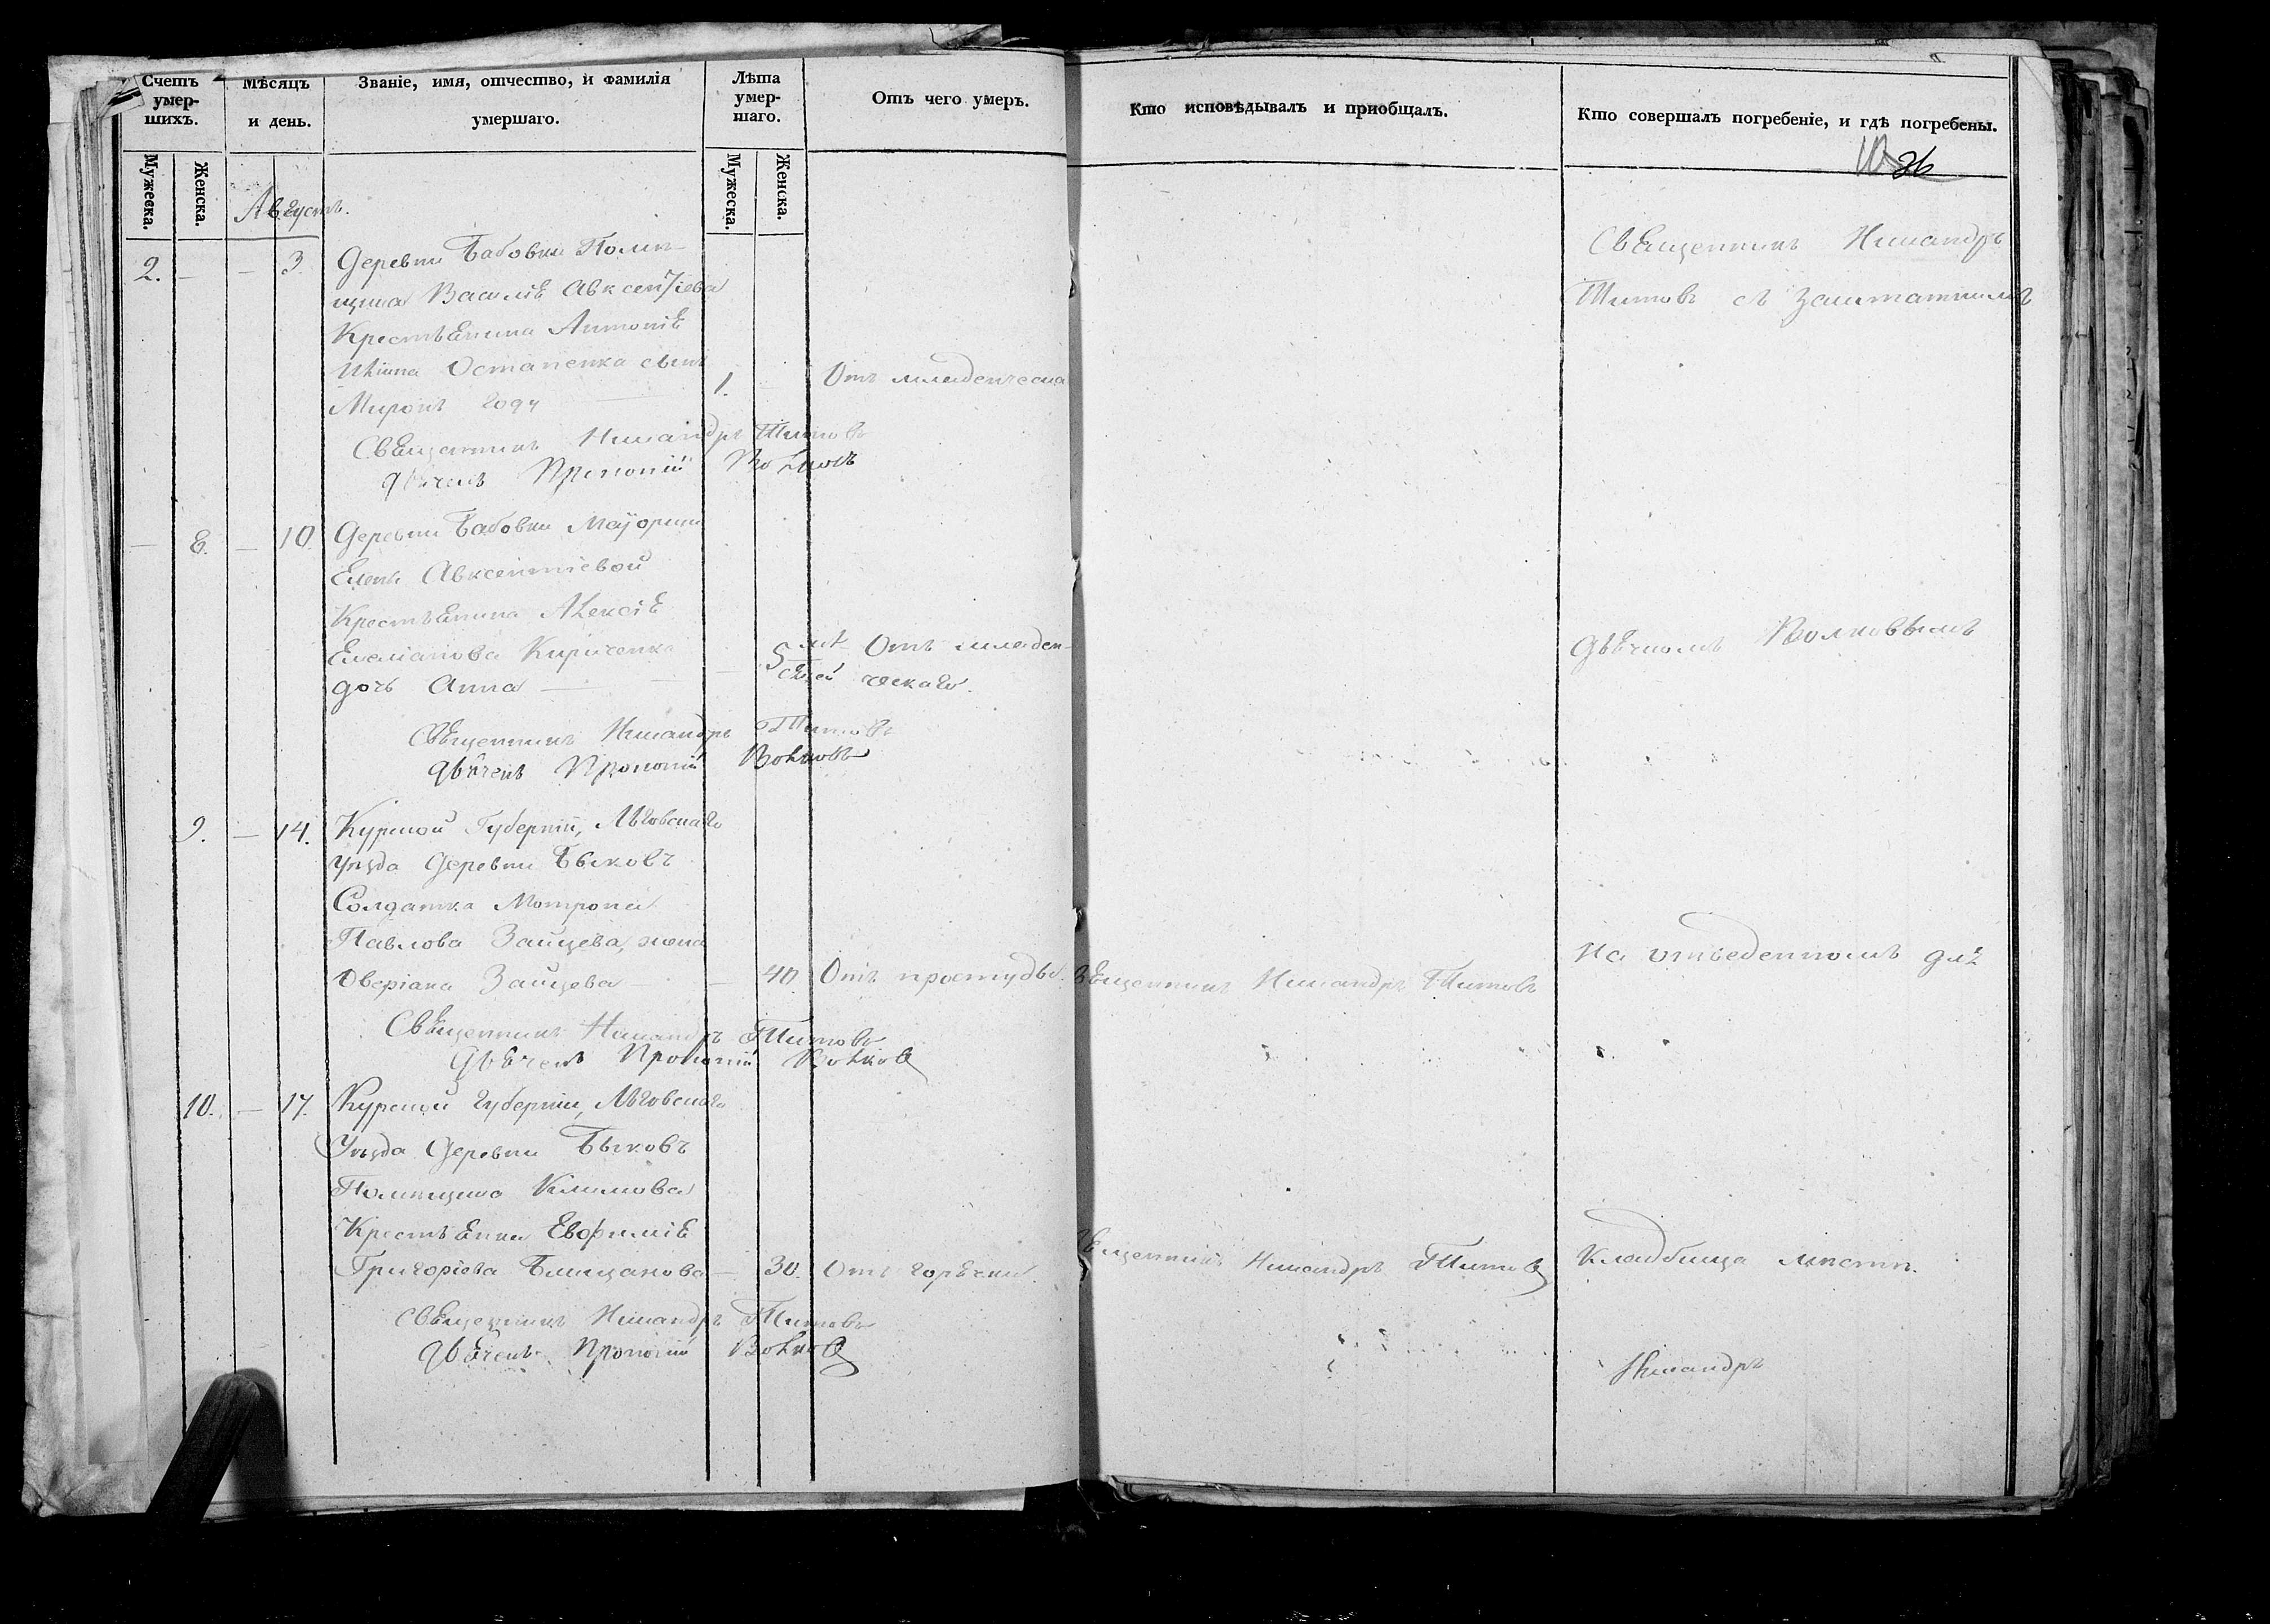 Счетъ умер-шихъ.
Мѣсяцъ и день.
Званіе, имя, отчество, и фамилія умершаго.
Лѣта умер-шаго.
Отъ чего умеръ.
Кто исповѣдывалъ и пріобщалъ.
Кто совершалъ погребеніе, и гдѣ погребены.
Мужеска.
Женска.
Мужеска.
Женска.
26
Августъ.
2. — — 3.
Деревни Бабовки Помѣ-
щика Василія Авксентіева
Крестьянина Антонія
Остапенка сынъ
Миронъ году
1.
Отъ младенческа
Священникъ Никандръ Титовъ
Дьячекъ Прокопій Волковъ
Священникъ Никандръ
Титовъ съ заштатнымъ
— 8. — 10.
Деревни Бабовки Маіорши
Елены Авксентіевой
Крестьянина Алексія
Емеліанова Кириченка
дочь Анна —
5
Отъ младен-
ческаго.
Священникъ Никандръ Титовъ
Дьячекъ Прокопій Волковъ
Дьячкомъ Волковымъ
9. — 14.
Курской Губерніи, Льговскаго
Уѣзда Деревни Быковъ
Солдатка Мотрона
Павлова Зайцева, жена
Оверіана Зайцева —
40.
Отъ простуды.
Священникъ Никандръ Титовъ
Священникъ Никандръ Титовъ
Дьячекъ Прокопій Волковъ
На отведенномъ для
10. — 17.
Курской Губерніи, Льговскаго
Уѣзда Деревни Быковъ
Помѣщика Климова
Крестьянка Евфимія
Григоріева —
30.
Отъ горячки.
Священникъ Никандръ Титовъ
Кладбища мѣстѣ.
Священникъ Никандръ Титовъ
Дьячекъ Прокопій Волковъ
Никандръ